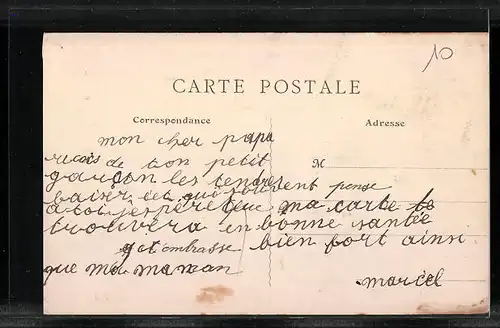 10
CARTE POSTALE
Correspondance
Adresse
M
mon cher papa
recois de ton petit
garçon les tendres
baiser et qui souvent pense
a toi j espère que ma carte te
trouvera en bonne santée
je t embrasse bien fort ainsi
que ma maman
marcel